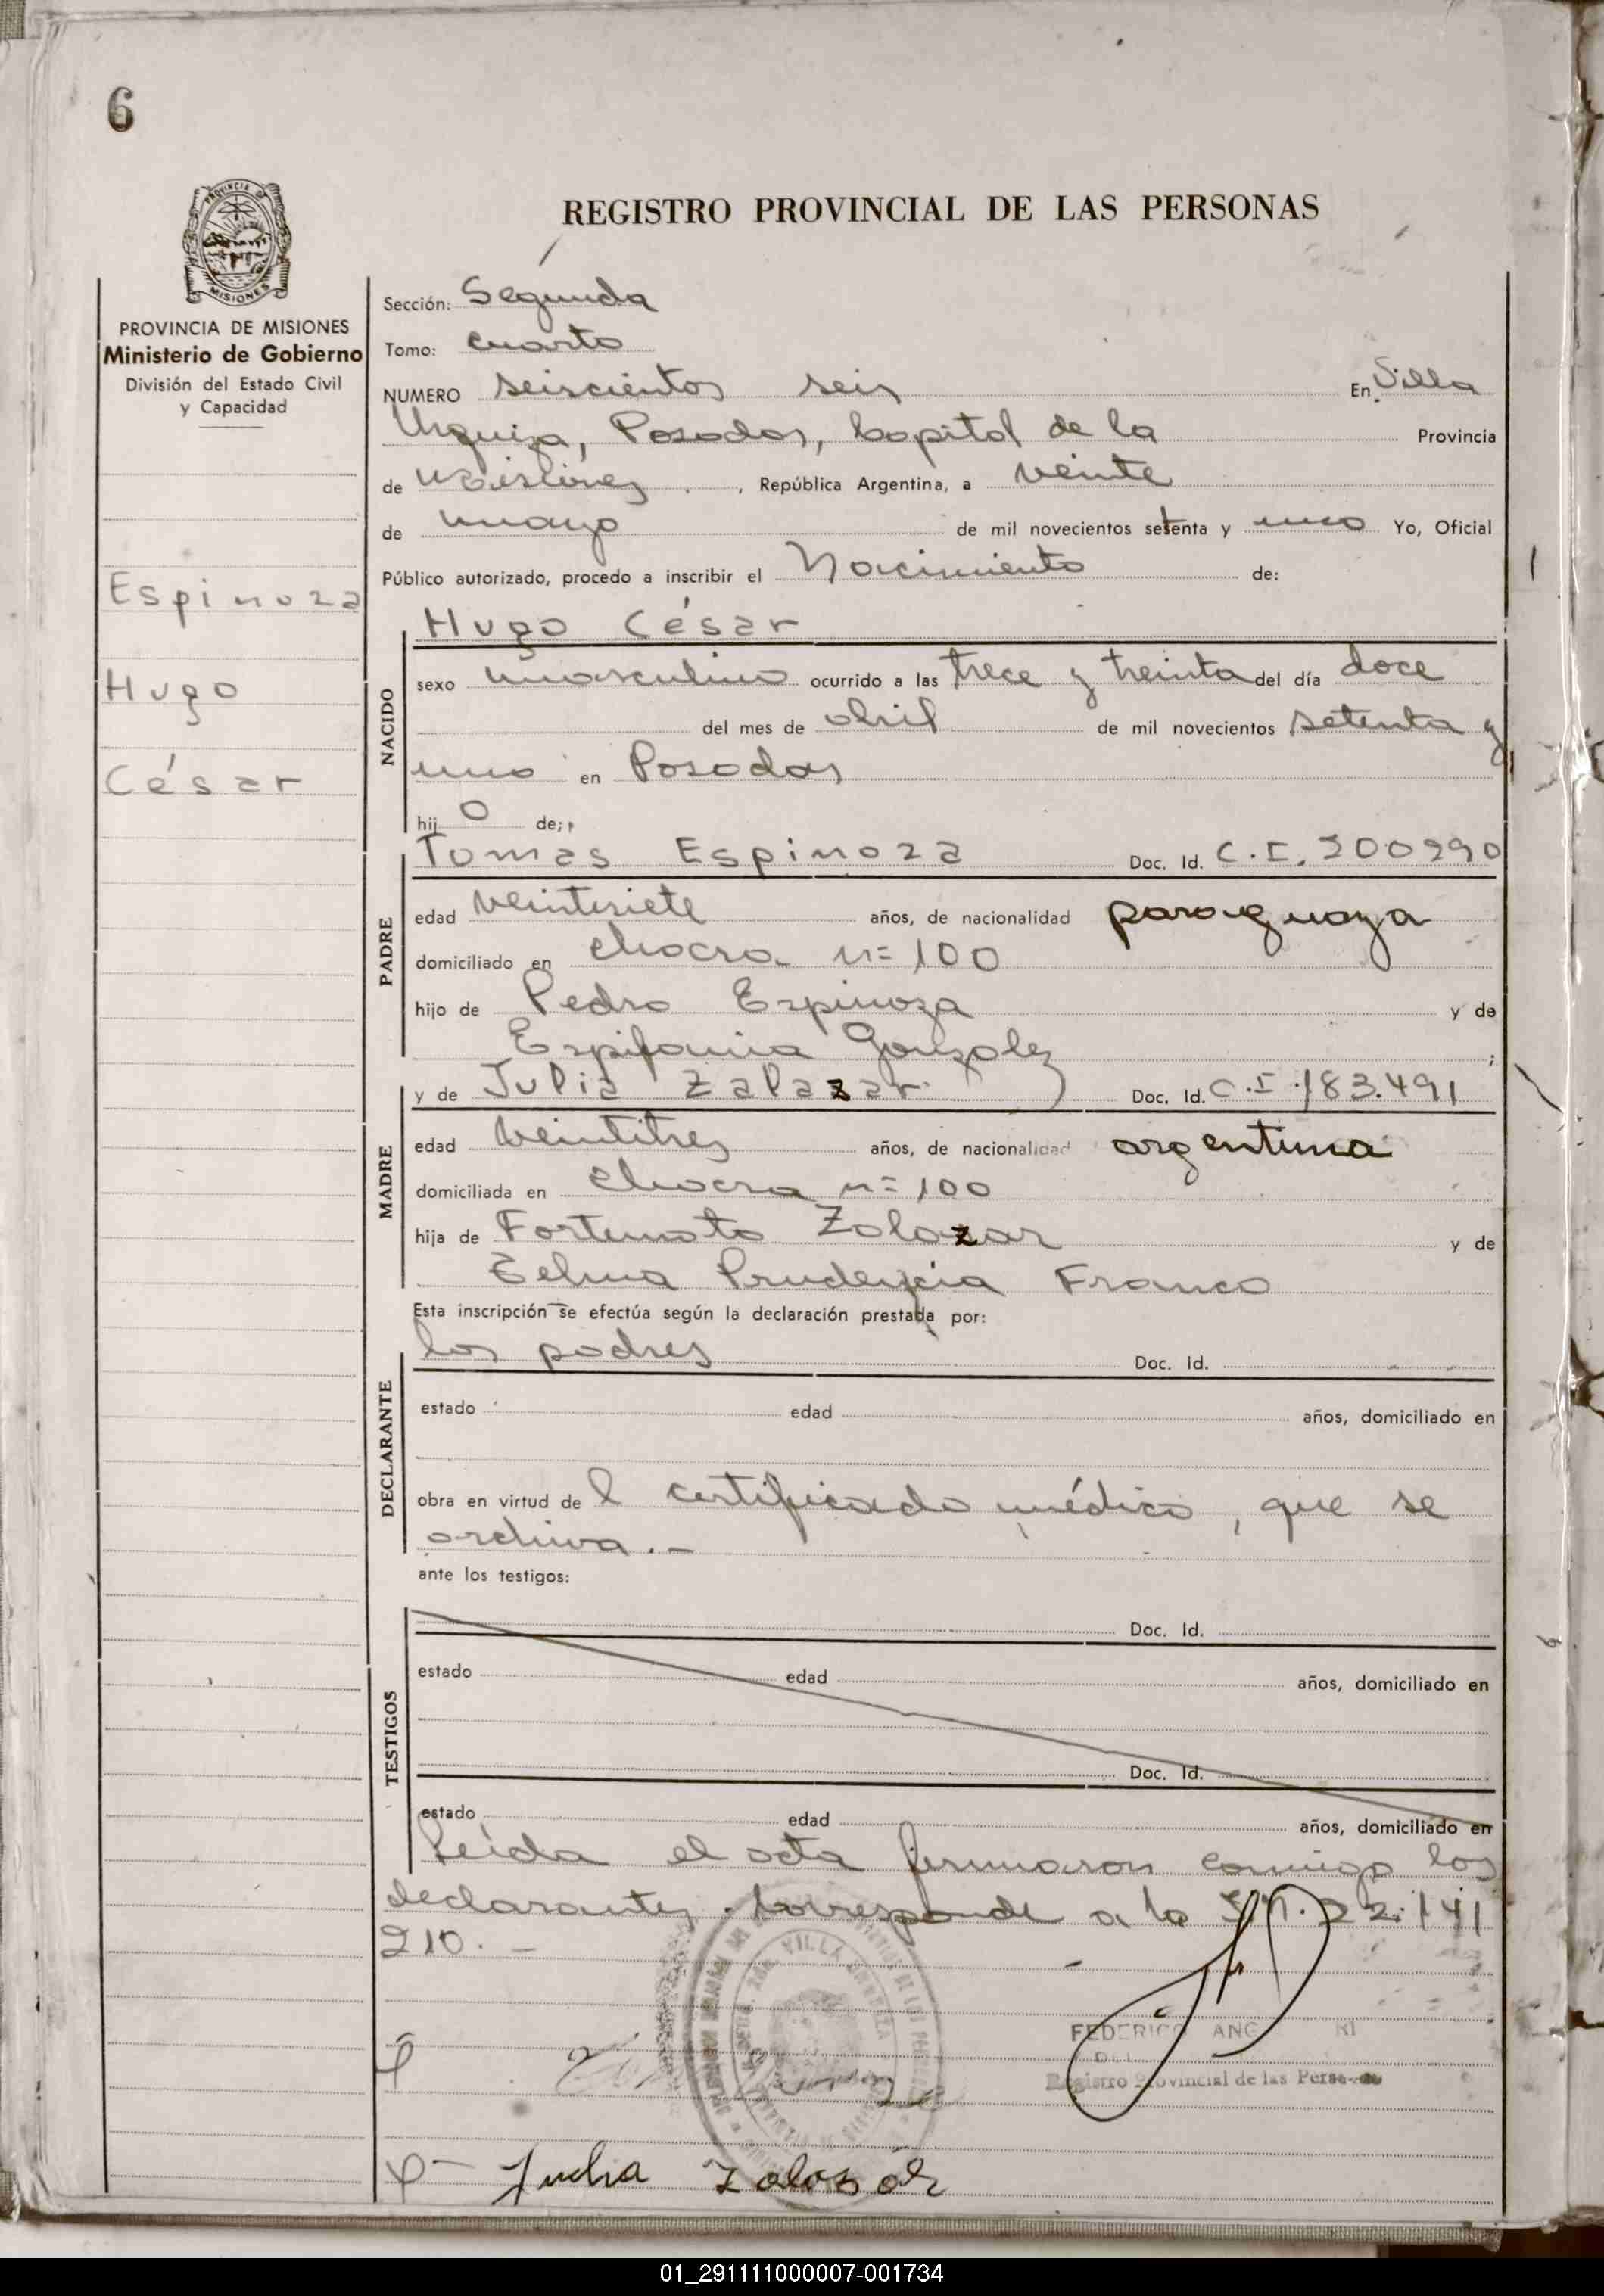 6
PROVINCIA DE
MISIONES
REGISTRO PROVINCIAL DE LAS PERSONAS
PROVINCIA DE MISIONES
Ministerio de Gobierno
División del Estado Civil
y Capacidad
Espinoza
Hugo
César
Sección: Segunda
Tomo: cuarto
NUMERO seiscientos seis En Villa
Urquiza, Posadas, Capital de la Provincia
de Misiones, República Argentina, a veinte
de mayo de mil novecientos setenta y uno Yo, Oficial
Público autorizado, procedo a inscribir el Nacimiento de:
Hugo César
NACIDO
sexo masculino ocurrido a las trece y treinta del día doce
del mes de abril de mil novecientos setenta y
uno en Posadas
hij o de;
Tomas Espinoza Doc. Id. C.I. 200990
PADRE
edad veintisiete años, de nacionalidad paraguaya
domiciliado en chacra n= 100
hijo de Pedro Espinoza y de
Espifania Gonzalez ;
y de Julia Zalazar Doc. Id. C.I. 183.491
MADRE
edad veintitres años, de nacionalidad argentina
domiciliada en chacra n= 100
hija de Fortunato Zalazar y de
Zelma Prudencia Franco
Esta inscripción se efectúa según la declaración prestada por:
los padres Doc. Id.
DECLARANTE
estado edad años, domiciliado en
obra en virtud de l certificado médico, que se
archiva.-
ante los testigos:
Doc. Id.
TESTIGOS
estado edad años, domiciliado en
Doc. Id.
estado edad años, domiciliado en
Leída el acta firmaron conmigo los
declarantes. Corresponde a la 22.141
210.-
VILLA URQUIZA
FEDERICO ANG
Registro Provincial de las Personas
Julia Zalazar
01_291111000007-001734